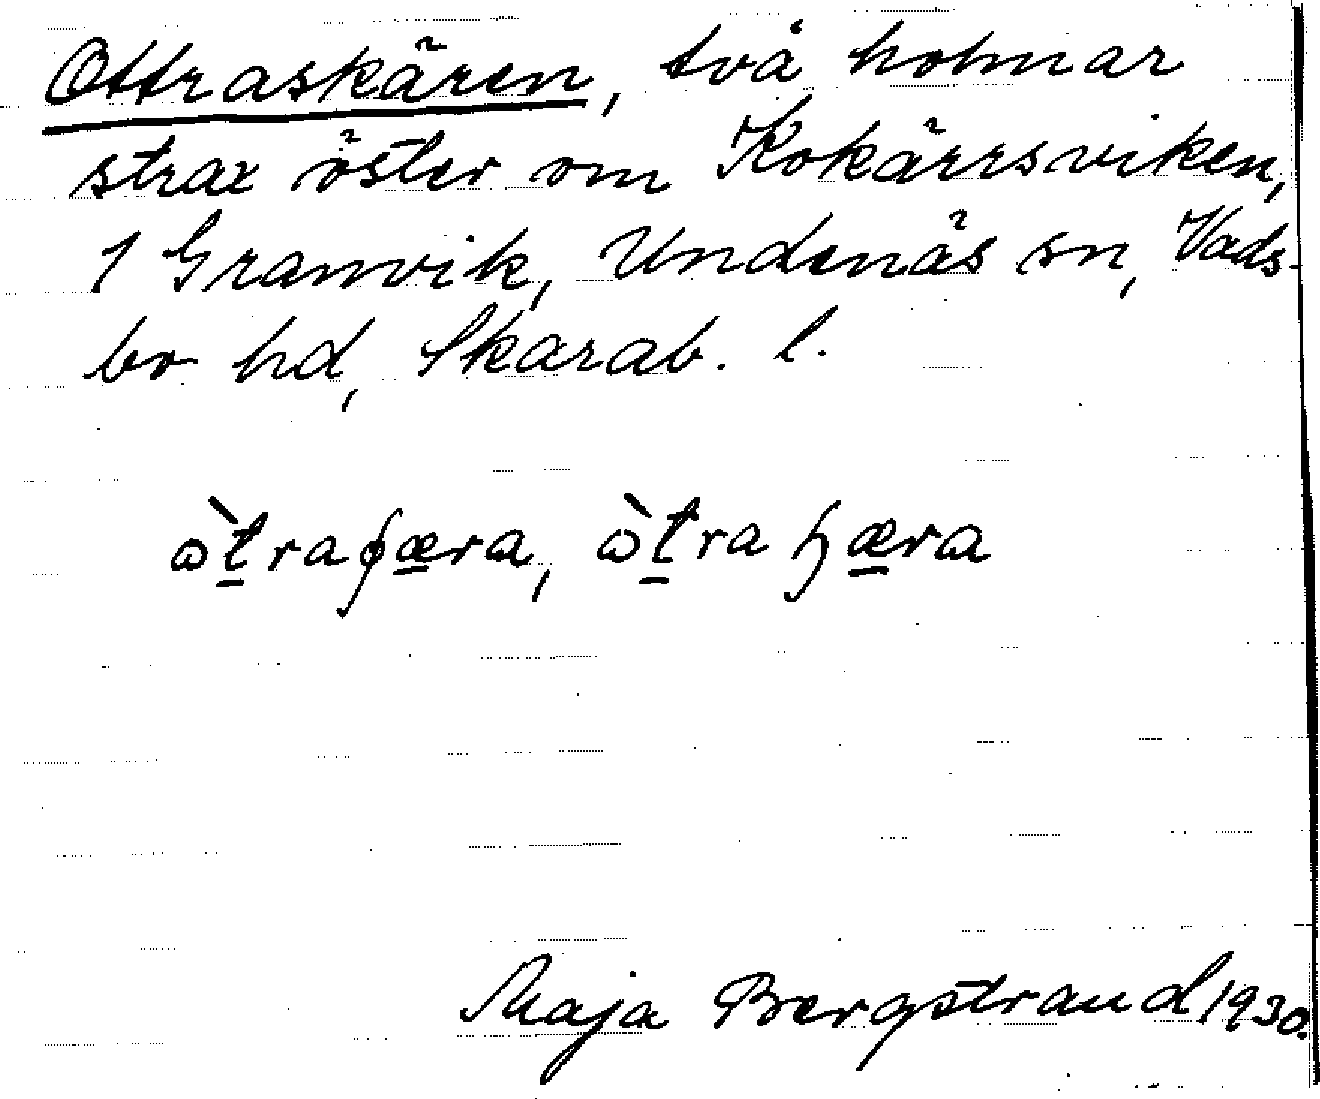 Ottraskären, två holmar
strax öster om Kokärrsviken,
1 Granvik, Undenäs sn, Vads-
bo hd, Skarab. l.
Maja Bergstrand 1930.